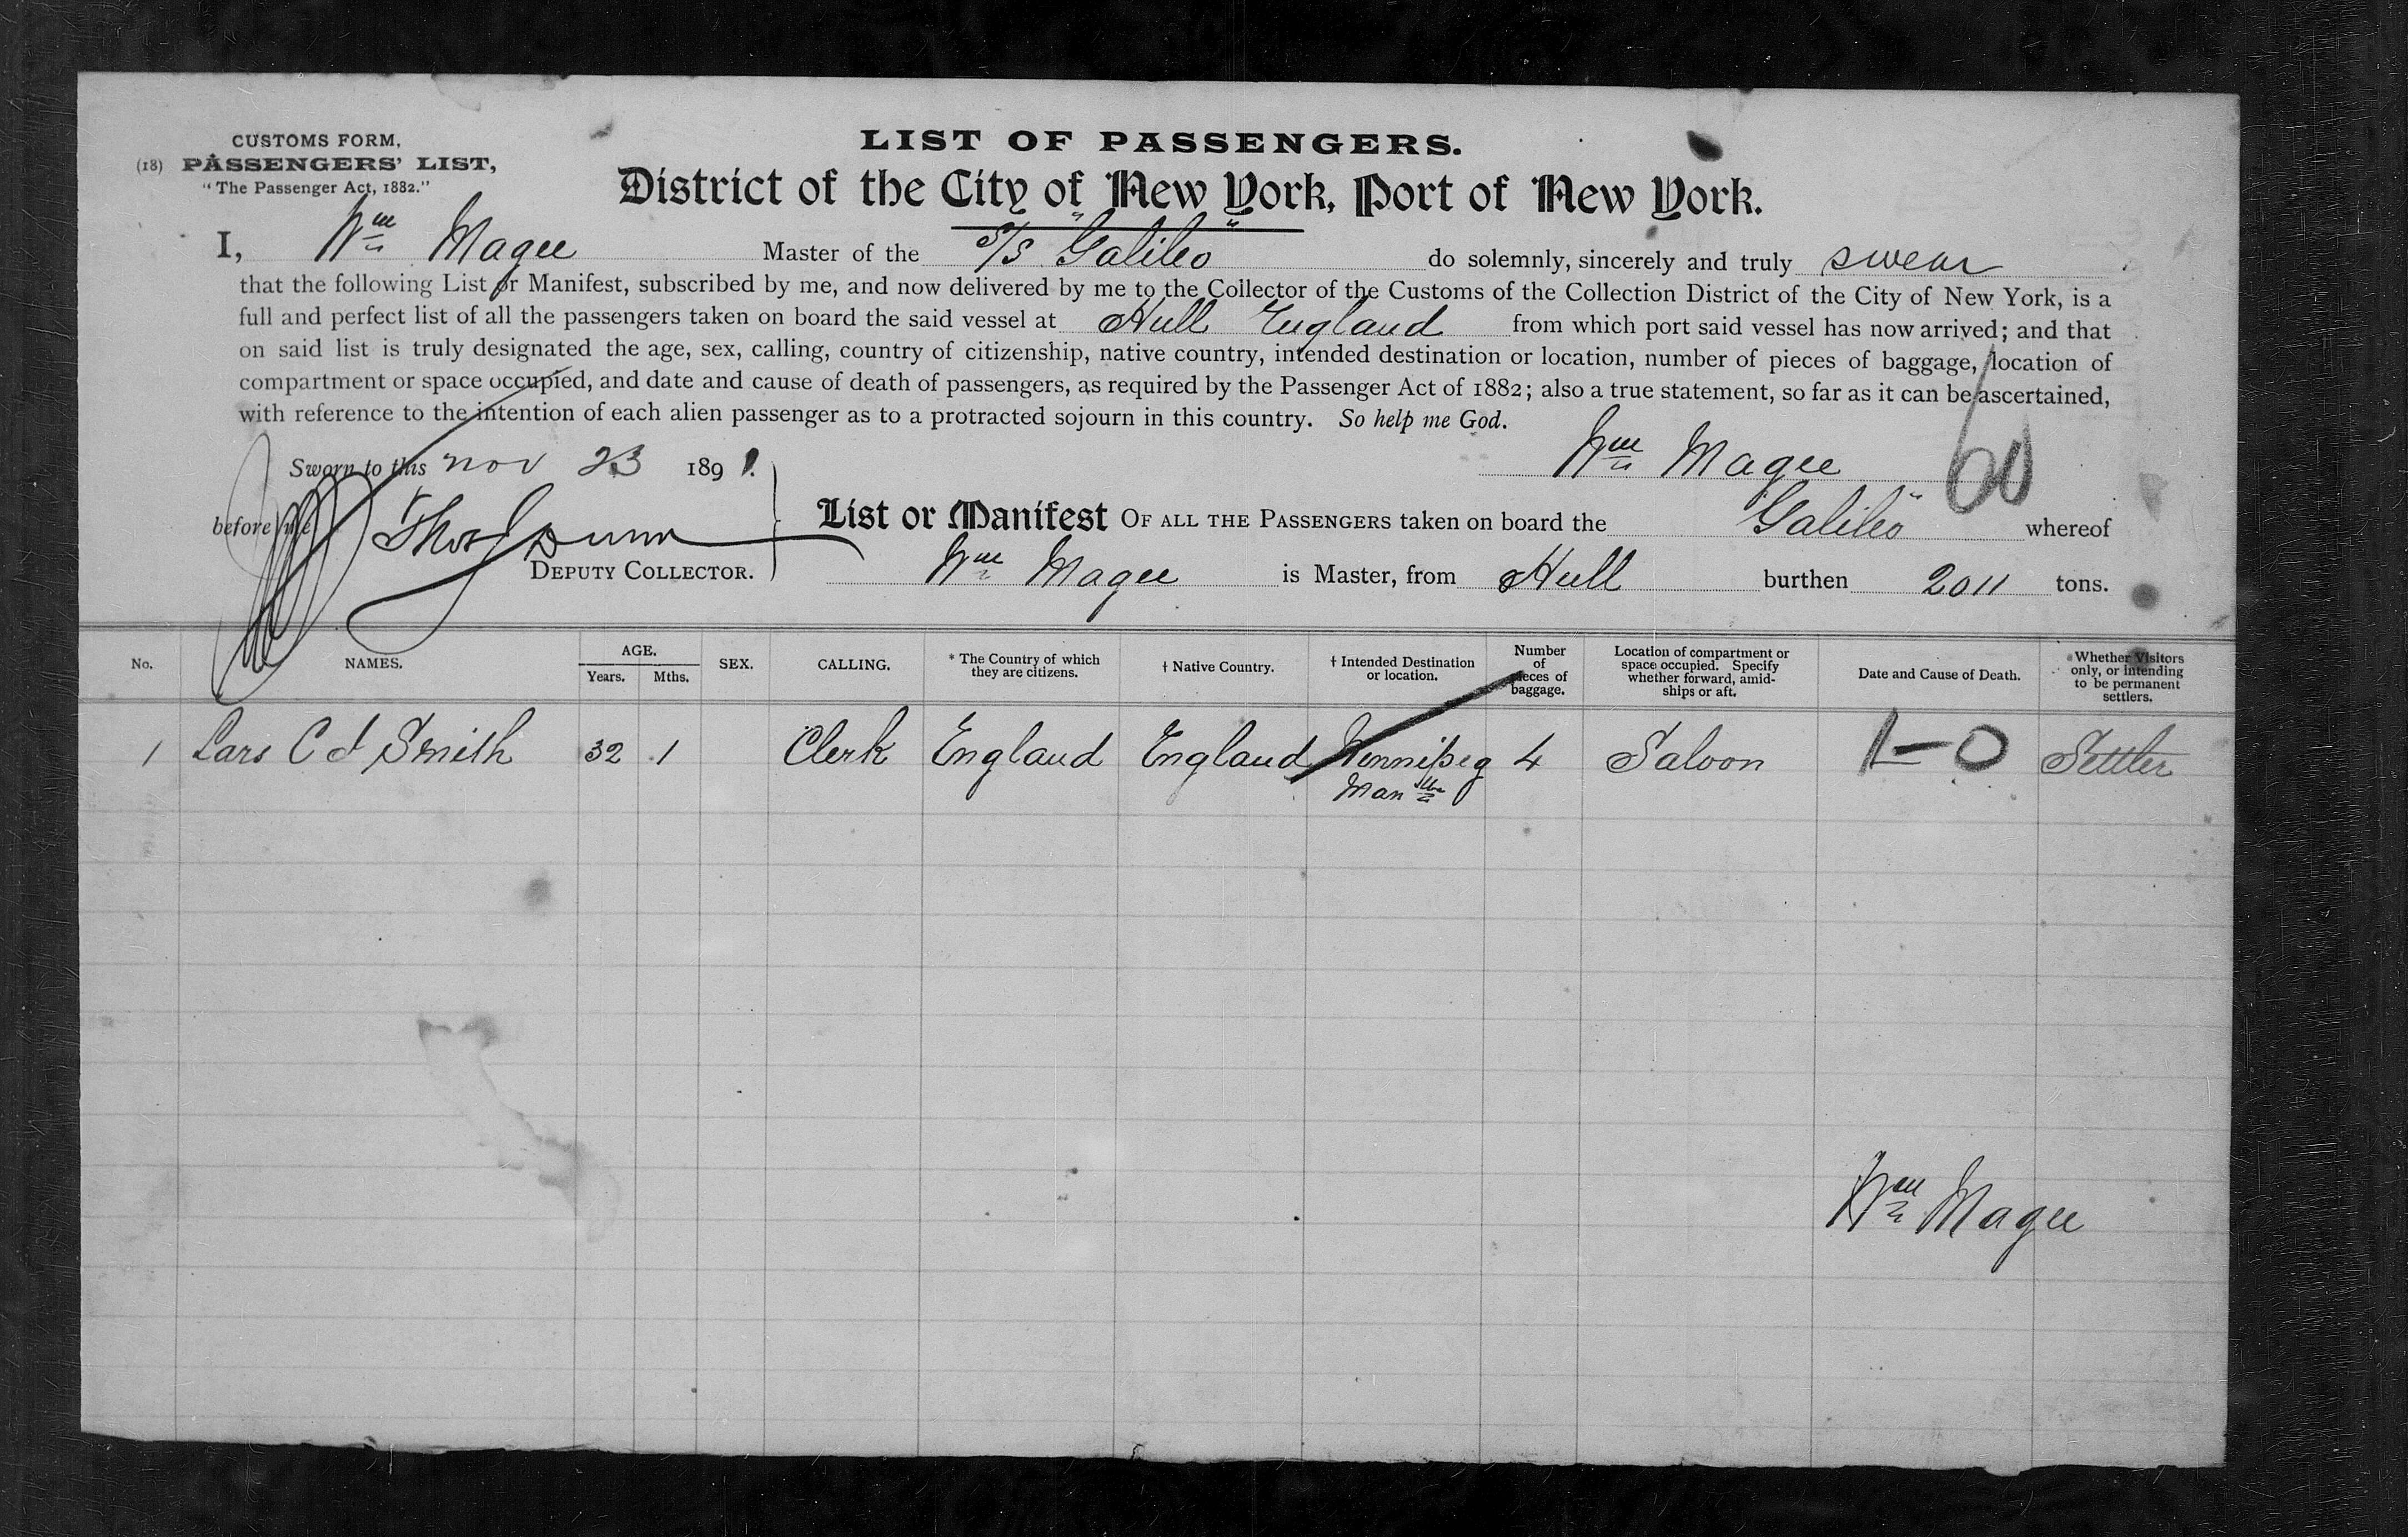 CUSTOMS FORM,
(18) PASSENGERS' LIST,
"The Passenger Act, 1882."
LIST OF PASSENGERS.
District of the City of New York, Port of New York.
I, Wm Magee Master of the S/S "Galileo" do solemnly, sincerely and truly swear
that the following List or Manifest, subscribed by me, and now delivered by me to the Collector of the Customs of the Collection District of the City of New York, is a
full and perfect list of all the passengers taken on board the said vessel at Hull England from which port said vessel has now arrived; and that
on said list is truly designated the age, sex, calling, country of citizenship, native country, intended destination or location, number of pieces of baggage, location of
compartment or space occupied, and date and cause of death of passengers, as required by the Passenger Act of 1882; also a true statement, so far as it can be ascertained,
with reference to the intention of each alien passenger as to a protracted sojourn in this country. So help me God.
Sworn to this Nov 23 1891. Wm Magee
before me Thos Dunn
DEPUTY COLLECTOR.
List or Manifest OF ALL THE PASSENGERS taken on board the "Galileo" whereof
Wm Magee is Master, from Hull burthen 2011 tons.
No. NAMES. AGE. Years. Mths. SEX. CALLING. * The Country of which they are citizens. † Native Country. † Intended Destination or location. Number of pieces of baggage. Location of compartment or space occupied. Specify whether forward, amidships or aft. Date and Cause of Death. Whether Visitors only, or intending to be permanent settlers.
1 Lars C J Smith 32 1 Clerk England England Winnipeg 4 Saloon 1-0 Settler
Man
Wm Magee